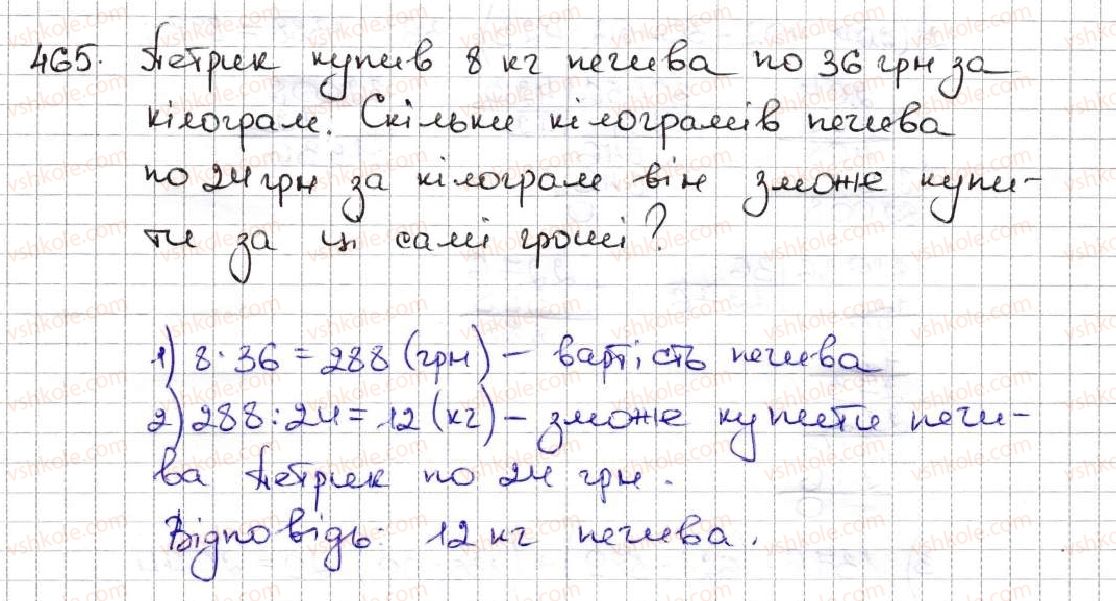 465. Петрик купив 8 кг печива по 36 грн за
кілограм. Скільки кілограмів печива
по 24 грн за кілограм він зможе купи-
ти за ці самі гроші?
1) 8·36=288 (грн) – вартість печива
2) 288:24=12 (кг) – зможе купити печи-
ва Петрик по 24 грн.
Відповідь: 12 кг печива.